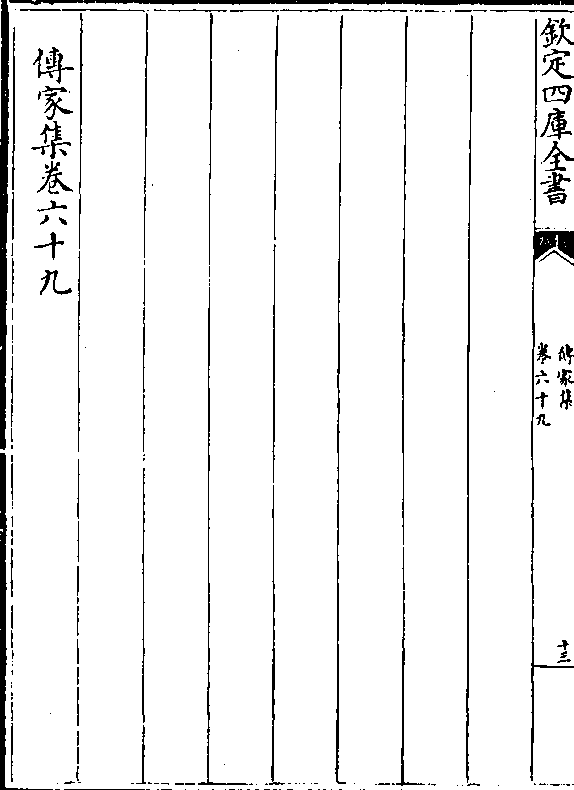 欽定四庫全書
傳家集
卷六十九
十三
傳家集卷六十九